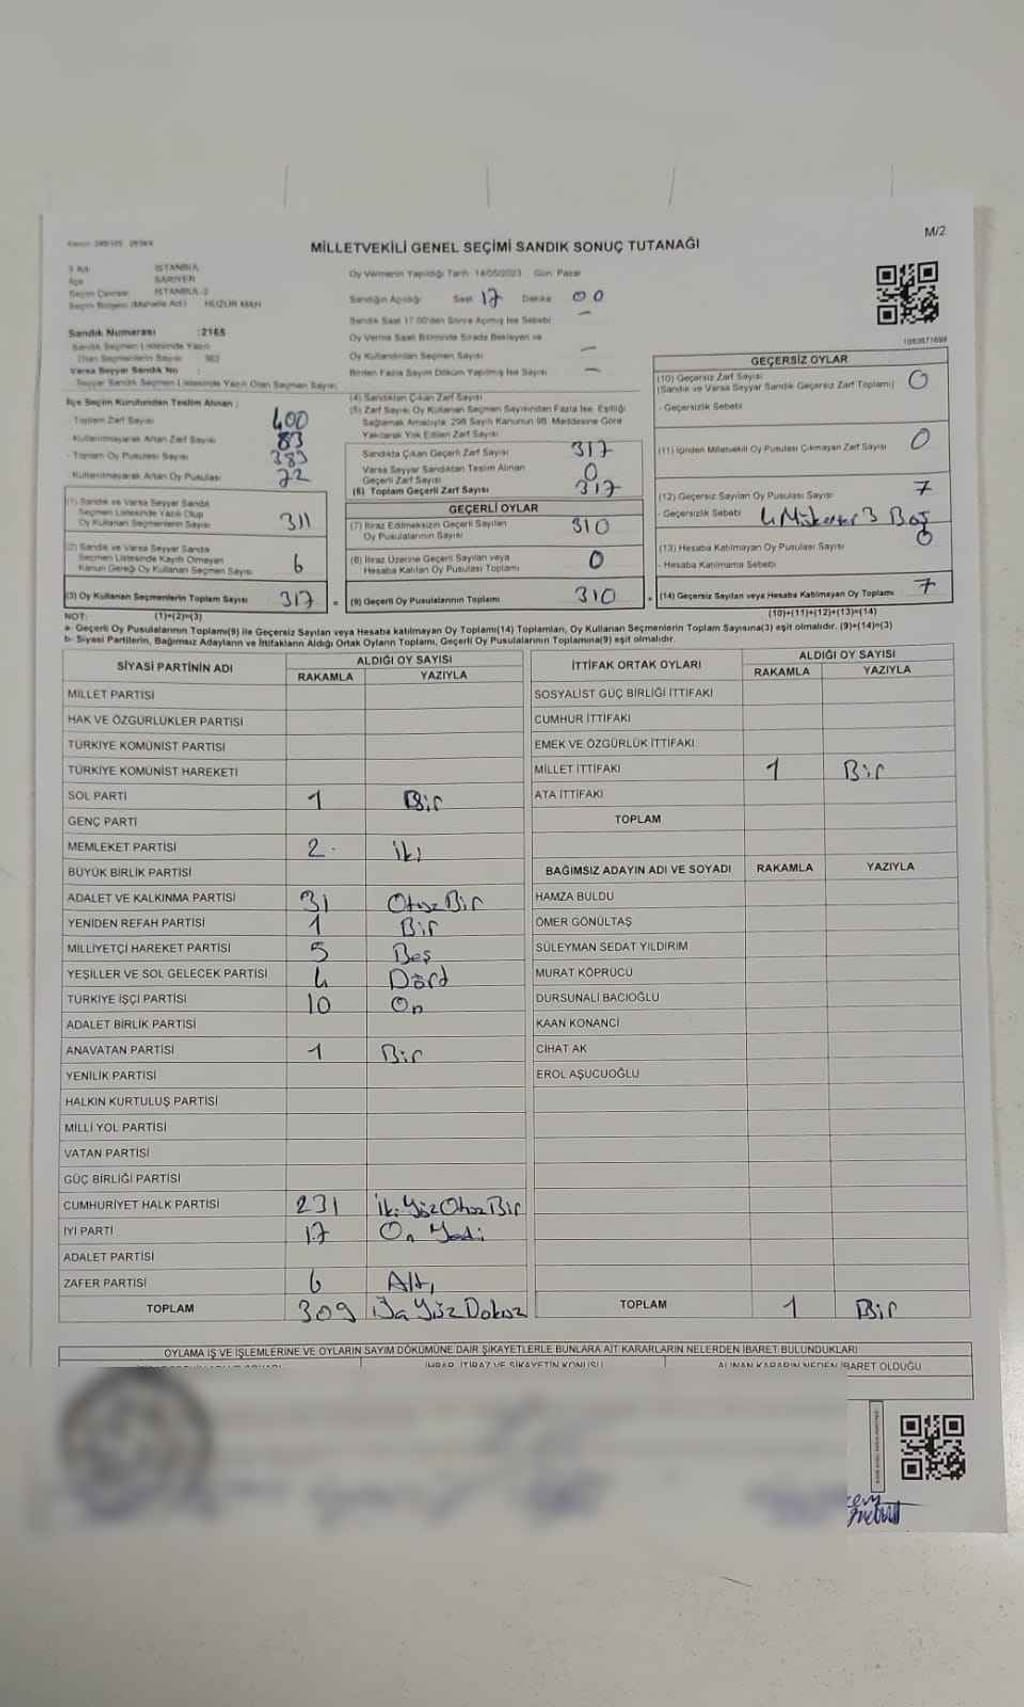 M/2
MİLLETVEKİLİ GENEL SEÇİMİ SANDIK SONUÇ TUTANAĞI
İSTANBUL
SARIYER
İSTANBUL-2
Seçim Bölgesi (Mahalle Adı) HUZUR MAH
Sandık Numarası :2165
Varsa Seyyar Sandık No :
Seyyar Sandık Seçmen Listesinde Yazılı Olan Seçmen Sayısı
Oy Vermenin Yapıldığı Tarih 14/05/2023 Gün Pazar
Sandığın Açıldığı Saat 17 Dakika 00
Sandık Saat 17.00'den Sonra Açılmış İse Sebebi -
Oy Verme Saati Bitiminde Sırada Bekleyen ve
Oy Kullandırılan Seçmen Sayısı -
Birden Fazla Sayım Döküm Yapılmış İse Sayısı -
İlçe Seçim Kurulundan Teslim Alınan :
Toplam Zarf Sayısı 400
Kullanılmayarak Artan Zarf Sayısı 83
Toplam Oy Pusulası Sayısı 383
Kullanılmayarak Artan Oy Pusulası 72
(1) Sandık ve Varsa Seyyar Sandık
Seçmen Listesinde Yazılı Olup
Oy Kullanan Seçmenlerin Sayısı 311
(2) Sandık ve Varsa Seyyar Sandık
Seçmen Listesinde Kayıtlı Olmayan
Kanun Gereği Oy Kullanan Seçmen Sayısı 6
(3) Oy Kullanan Seçmenlerin Toplam Sayısı 317 =
(4) Sandıktan Çıkan Zarf Sayısı
(5) Zarf Sayısı Oy Kullanan Seçmen Sayısından Fazla İse, Eşitliği
Sağlamak Amacıyla, 298 Sayılı Kanunun 98. Maddesine Göre
Yakılarak Yok Edilen Zarf Sayısı
Sandıkta Çıkan Geçerli Zarf Sayısı 317
Varsa Seyyar Sandıktan Teslim Alınan
Geçerli Zarf Sayısı 0
(6) Toplam Geçerli Zarf Sayısı 317
GEÇERLİ OYLAR
(7) İtiraz Edilmeksizin Geçerli Sayılan
Oy Pusulalarının Sayısı 310
(8) İtiraz Üzerine Geçerli Sayılan veya
Hesaba Katılan Oy Pusulası Toplamı 0
(9) Geçerli Oy Pusulalarının Toplamı 310 +
GEÇERSİZ OYLAR
(10) Geçersiz Zarf Sayısı
(Sandık ve Varsa Seyyar Sandık Geçersiz Zarf Toplamı) 0
- Geçersizlik Sebebi
(11) İçinden Milletvekili Oy Pusulası Çıkmayan Zarf Sayısı 0
(12) Geçersiz Sayılan Oy Pusulası Sayısı 7
- Geçersizlik Sebebi 4 Mükerrer 3 Boş
(13) Hesaba Katılmayan Oy Pusulası Sayısı 0
- Hesaba Katılmama Sebebi
(14) Geçersiz Sayılan veya Hesaba Katılmayan Oy Toplamı 7
NOT: (1)+(2)=(3) (10)+(11)+(12)+(13)=(14)
a- Geçerli Oy Pusulalarının Toplamı(9) ile Geçersiz Sayılan veya Hesaba katılmayan Oy Toplamı(14) Toplamları, Oy Kullanan Seçmenlerin Toplam Sayısına(3) eşit olmalıdır. (9)+(14)=(3)
b- Siyasi Partilerin, Bağımsız Adayların ve İttifakların Aldığı Ortak Oyların Toplamı, Geçerli Oy Pusulalarının Toplamına(9) eşit olmalıdır.
SİYASİ PARTİNİN ADI ALDIĞI OY SAYISI
RAKAMLA YAZIYLA
MİLLET PARTİSİ
HAK VE ÖZGÜRLÜKLER PARTİSİ
TÜRKİYE KOMÜNİST PARTİSİ
TÜRKİYE KOMÜNİST HAREKETİ
SOL PARTİ 1 Bir
GENÇ PARTİ
MEMLEKET PARTİSİ 2 İki
BÜYÜK BİRLİK PARTİSİ
ADALET VE KALKINMA PARTİSİ 31 Otuz Bir
YENİDEN REFAH PARTİSİ 1 Bir
MİLLİYETÇİ HAREKET PARTİSİ 5 Beş
YEŞİLLER VE SOL GELECEK PARTİSİ 4 Dörd
TÜRKİYE İŞÇİ PARTİSİ 10 On
ADALET BİRLİK PARTİSİ
ANAVATAN PARTİSİ 1 Bir
YENİLİK PARTİSİ
HALKIN KURTULUŞ PARTİSİ
MİLLİ YOL PARTİSİ
VATAN PARTİSİ
GÜÇ BİRLİĞİ PARTİSİ
CUMHURİYET HALK PARTİSİ 231 İki Yüz Otuz Bir
İYİ PARTİ 17 On Yedi
ADALET PARTİSİ
ZAFER PARTİSİ 6 Altı
TOPLAM 309 Yüz Dokuz
İTTİFAK ORTAK OYLARI ALDIĞI OY SAYISI
RAKAMLA YAZIYLA
SOSYALİST GÜÇ BİRLİĞİ İTTİFAKI
CUMHUR İTTİFAKI
EMEK VE ÖZGÜRLÜK İTTİFAKI
MİLLET İTTİFAKI 1 Bir
ATA İTTİFAKI
TOPLAM
BAĞIMSIZ ADAYIN ADI VE SOYADI RAKAMLA YAZIYLA
HAMZA BULDU
ÖMER GÖNÜLTAŞ
SÜLEYMAN SEDAT YILDIRIM
MURAT KÖPRÜCÜ
DURSUNALİ BACIOĞLU
KAAN KONANCİ
CİHAT AK
EROL AŞUCUOĞLU
TOPLAM 1 Bir
OYLAMA İŞ VE İŞLEMLERİNE VE OYLARIN SAYIM DÖKÜMÜNE DAİR ŞİKAYETLERLE BUNLARA AİT KARARLARIN NELERDEN İBARET BULUNDUKLARI
İHBAR, İTİRAZ VE ŞİKAYETİN KONUSU ALINAN KARARIN NEDEN İBARET OLDUĞU